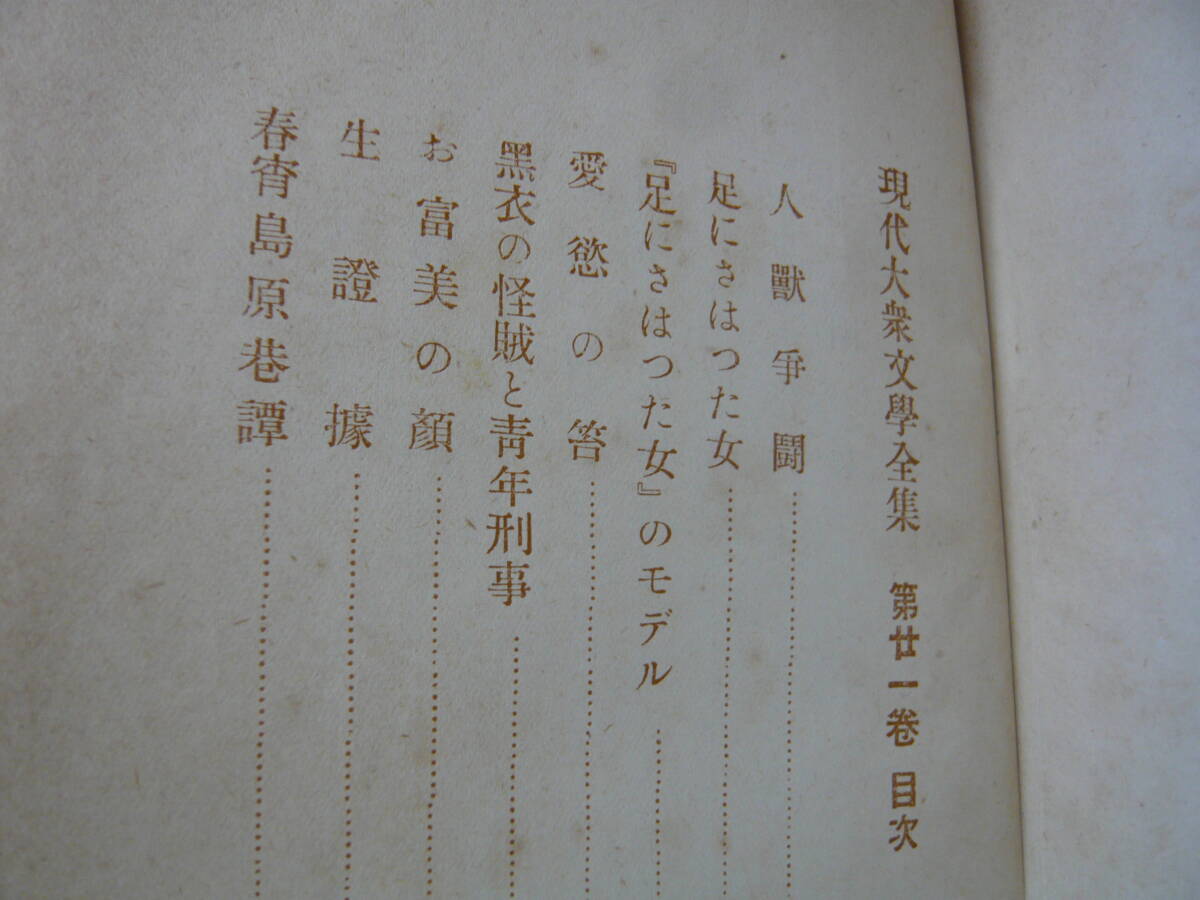 現代大衆文學全集 第廿一卷 目次
人獸爭鬪
足にさはつた女
『足にさはつた女』のモデル
愛慾の笞
黑衣の怪賊と青年刑事
お富美の顏
生證據
春宵島原巷譚